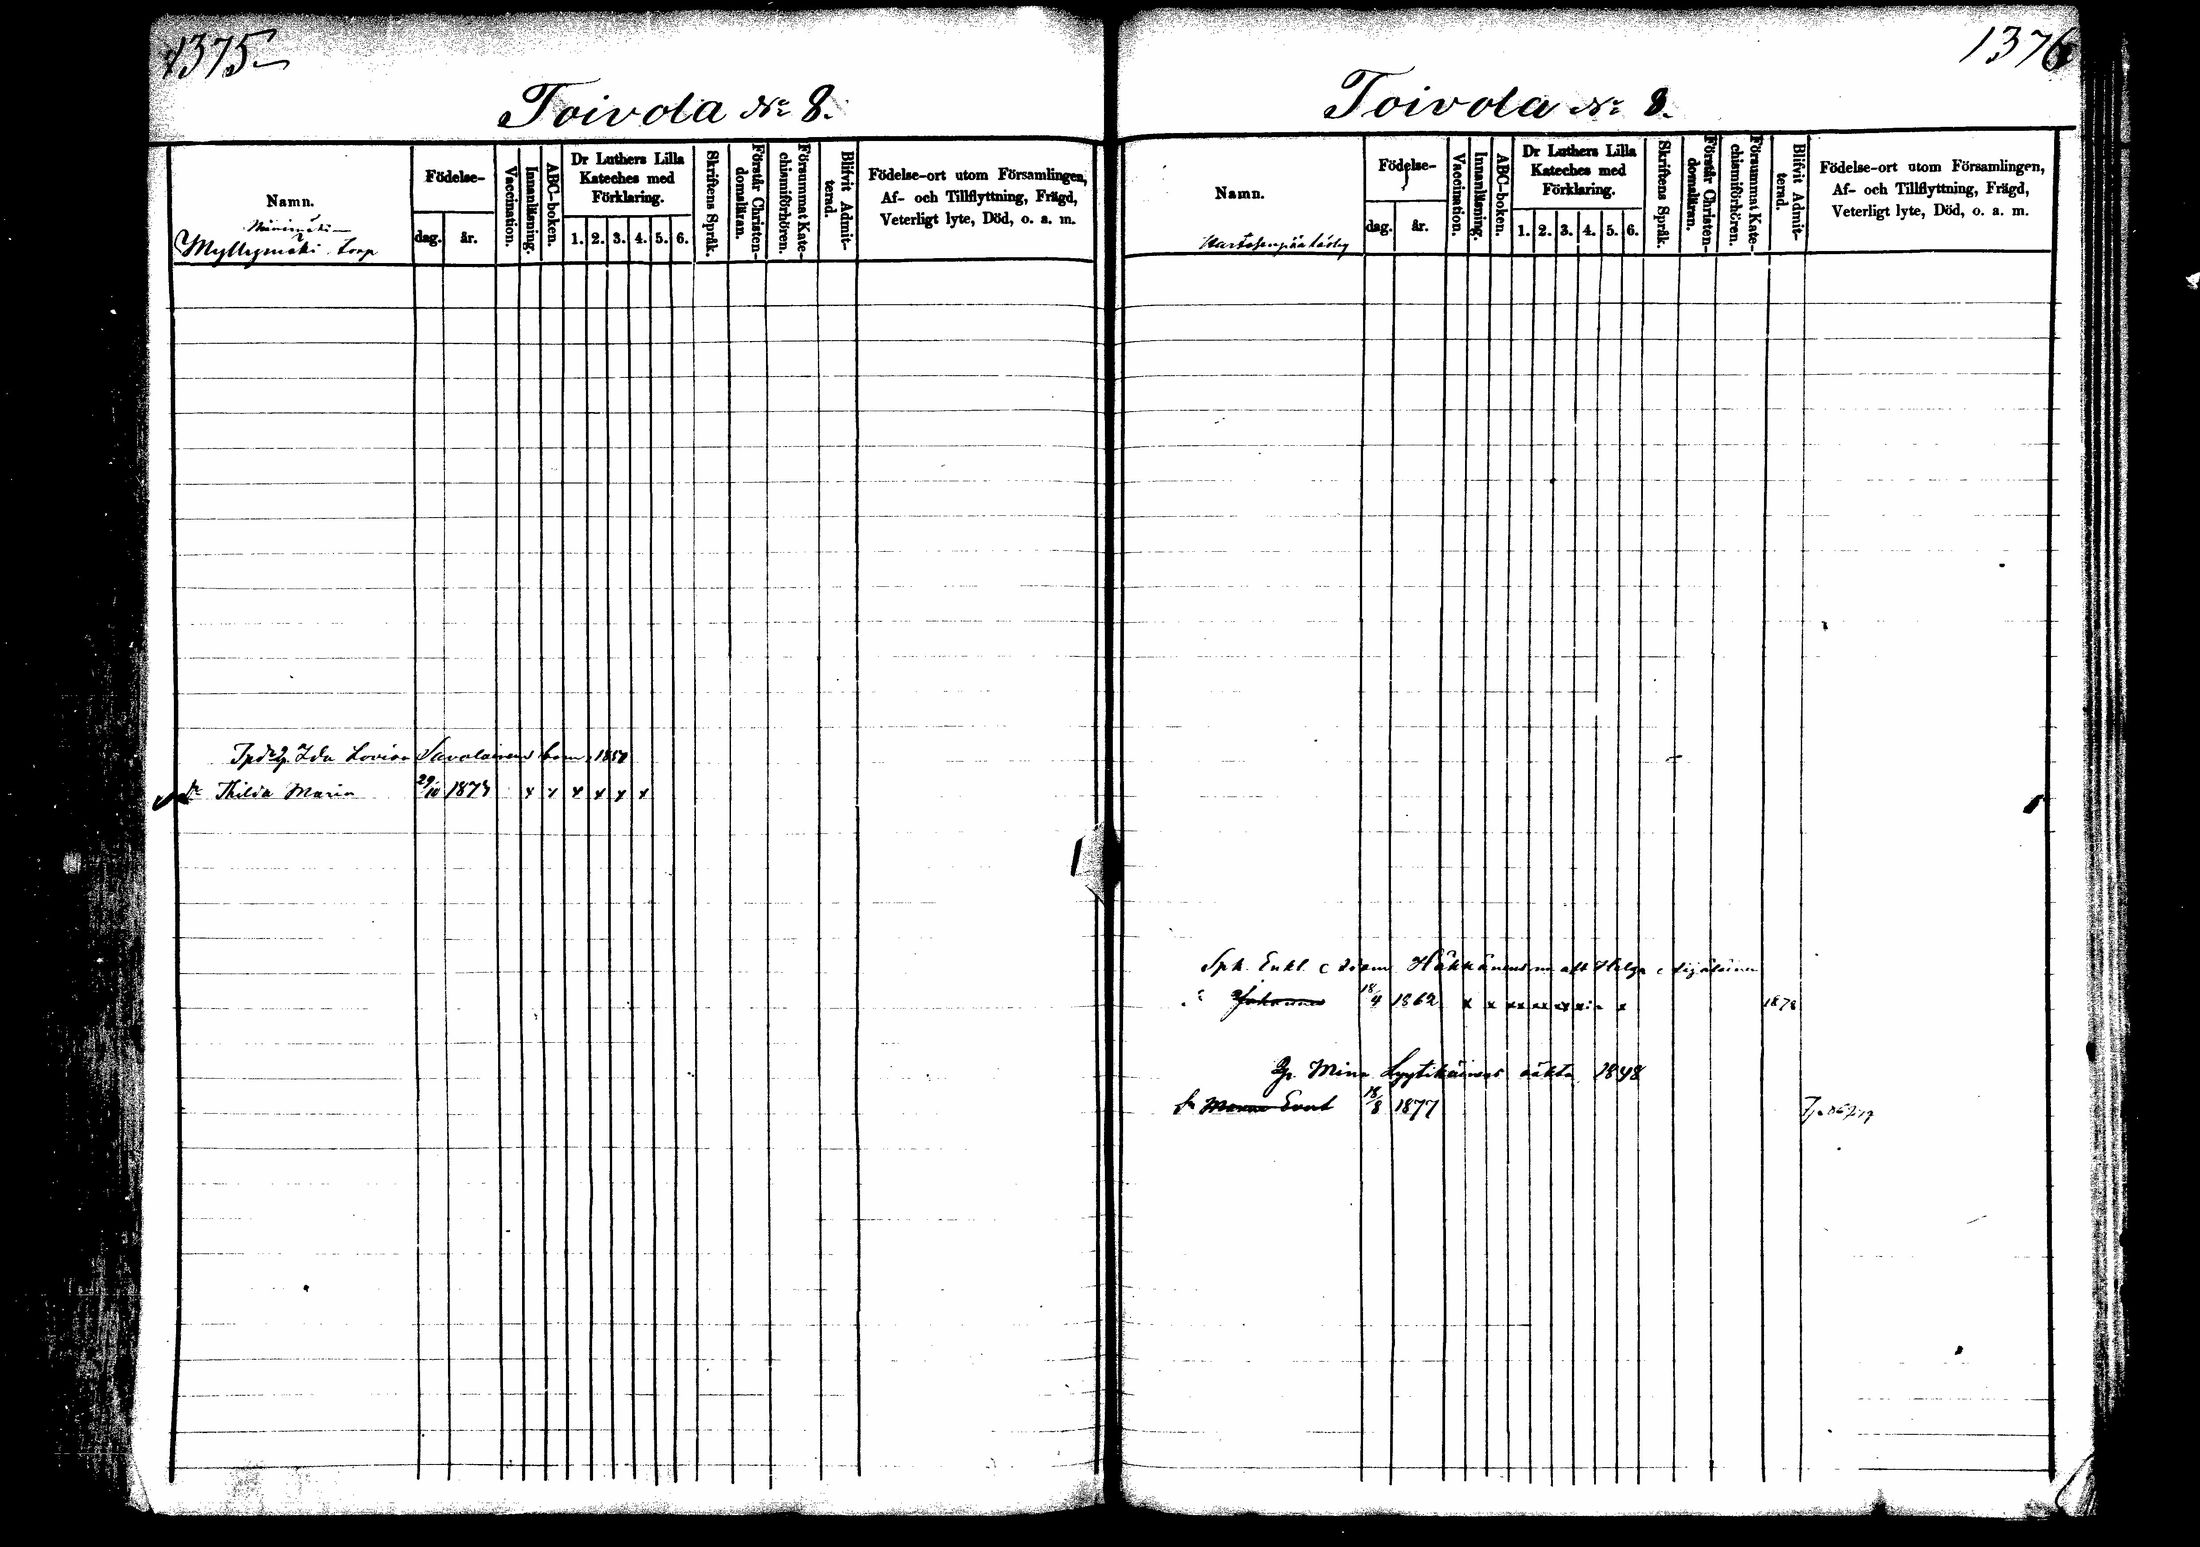 1375
Toivola No 8.
Namn.
Födelse-
dag.
år.
Vaccination.
Innanläsning.
ABC-boken.
Dr Luthers Lilla
Kateches med
Förklaring.
1. 2. 3. 4. 5. 6.
Skriftens Språk.
Förstår Christen-
domsläran.
Försummat Kate-
chismiförhören.
Blifvit Admit-
terad.
Födelse-ort utom Församlingen,
Af- och Tillflyttning, Frägd,
Veterligt lyte, Död, o. a. m.
Myllymäki torp
Ida Lovisa Savolainens barn 1850
dr Thilda Maria 29/10 1873 x x x x x x
1376
Toivola No 8.
Namn.
Födelse-
dag.
år.
Vaccination.
Innanläsning.
ABC-boken.
Dr Luthers Lilla
Kateches med
Förklaring.
1. 2. 3. 4. 5. 6.
Skriftens Språk.
Förstår Christen-
domsläran.
Försummat Kate-
chismiförhören.
Blifvit Admit-
terad.
Födelse-ort utom Församlingen,
Af- och Tillflyttning, Frägd,
Veterligt lyte, Död, o. a. m.
Sph. Enkl. Adam Häkkänens m afl Helga
Johannes 18/4 1862 x x xx xx xx x x 1878
Mina Lyytikäinens oäkta 1848
Evert 18/8 1877